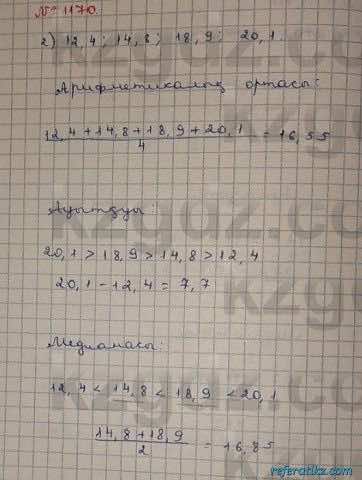 № 1170.
2) 12,4; 14,8; 18,9; 20,1.
Арифметикалық ортасы:
12,4+14,8+18,9+20,1 / 4 = 16,55
Ауытқуы:
20,1 > 18,9 > 14,8 > 12,4
20,1 - 12,4 = 7,7
Медианасы:
12,4 < 14,8 < 18,9 < 20,1
14,8+18,9 / 2 = 16,85
referatikz.com